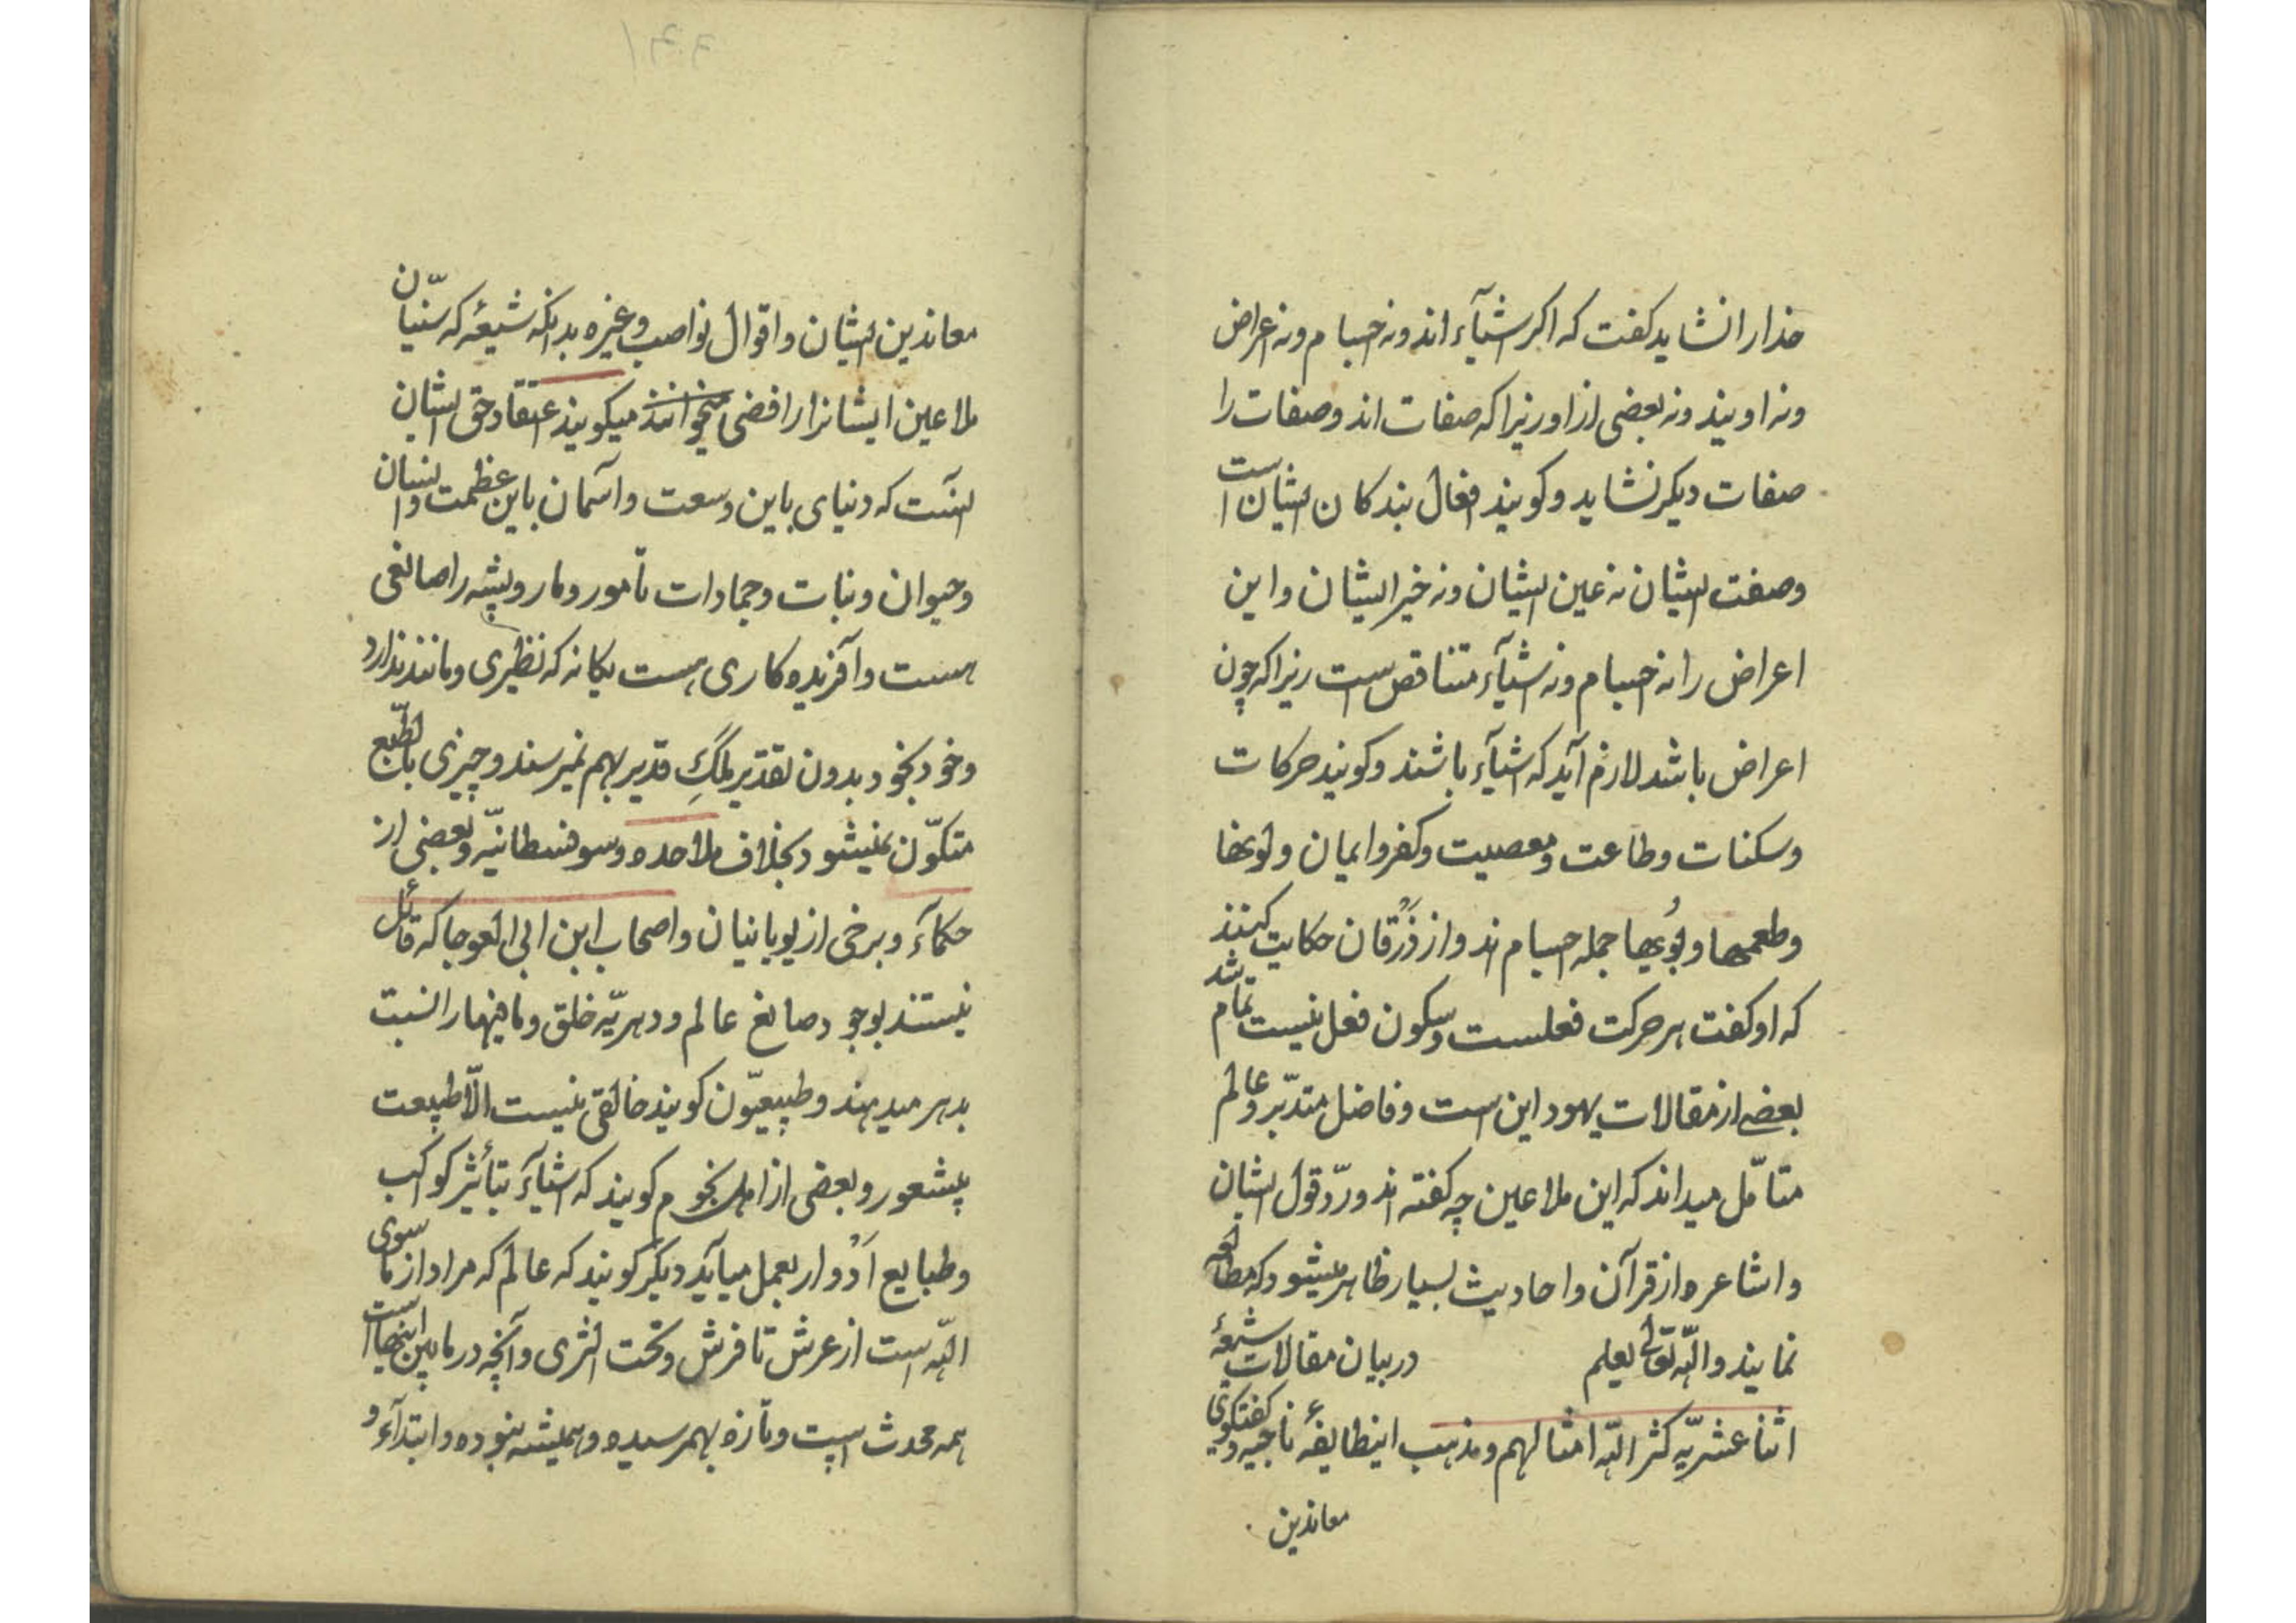 خدا را نشاید کفت که اکر اشیآء اند و نه اجسام و نه اعراض
و نه اویند و نه بعضی از او زیرا که صفات اند و صفات را
صفات دیکر نشاید و کویند افعال بندکان ایشان است
وصفت ایشان نه عین ایشان و نه غیر ایشان و این
اعراض را نه اجسام و نه اشیآء متناقض است زیرا که چون
اعراض باشد لازم آید که اشیآء باشند و کویند حرکات
و سکنات و طاعت و معصیت و کفر و ایمان و لونها
و طعمها و بُویها جمله اجسام اند و از زُرقان حکایت کنند
که او کفت هر حرکت فعلست و سکون فعل نیست تمام شد
بعضے از مقالات یهود این است و فاضل متدبّر و عالم
متامّل میداند که این ملاعین چه کفته اند و ردّ قول ایشان
و اشاعره از قرآن و احادیث بسیار ظاهر میشود که مطالعه
نمایند و اللّه تعالی یعلم در بیان مقالات شیعهٔ
اثنا عشریّه کثر اللّه امثالهم و مذهب اینطایفهٔ ناجیه و کفتکوی
معاندین
معاندین ایشان و اقوال نواصب و غیره بدانکه شیعهٔ که سنّیان
ملاعین ایشانرا رافضی میخوانند میکویند اعتقاد حق ایشان
اینست که دنیای باین وسعت و آسمان باین عظمت و انسان
و حیوان و نبات و جمادات تا مور و مار و پشه را صانعی
هست و آفریده کاری هست یکانه که نظیری و مانند ندارد
و خود بخود بدون تقدیر ملکِ قدیر بهم نمیرسند و چیزی بالطّبع
متکوّن نمیشود بخلاف ملاحده و سوفسطائیّه و بعضی از
حکمآء و برخی از یونانیان و اصحاب ابن ابی العوجا که قائل
نیستند بوجود صانع عالم و دهریّه خلق و مافیها را نسبت
بدهر میدهند و طبیعیّون کویند خالقی نیست الّا طبیعت
بیشعور و بعضی از اهل نجوم کویند که اشیآء بتأثیر کواکب
و طبایع اَدْوار بعمل میآید دیکر کویند که عالم که مراد از ما سوی
اللّه است از عرش تا فرش و تحت الثری و آنچه در مابین اینها است
همه محدث است و تازه بهمرسیده و همیشه نبوده و ابتدآء و